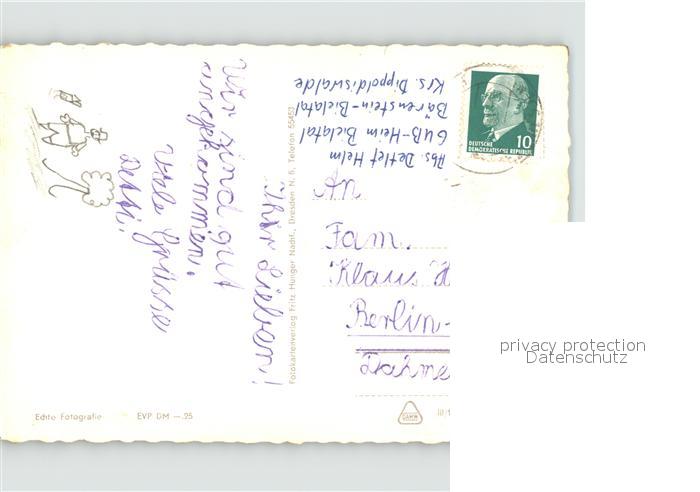 Ihr Lieben!
Wir sind gut
angekommen.
Viele Grüsse
Detti.
Abs. Detlef Helm
GUB-Heim Bielatal
Bärenstein-Bielatal
Krs. Dippoldiswalde
DEUTSCHE
DEMOKRATISCHE REPUBLIK
10
An
Fam.
Klaus H
Berlin-
Fotokartenverlag Fritz Hunger Nachf., Dresden N. 6, Telefon 55453
Echte Fotografie EVP DM —.25
privacy protection
Datenschutz